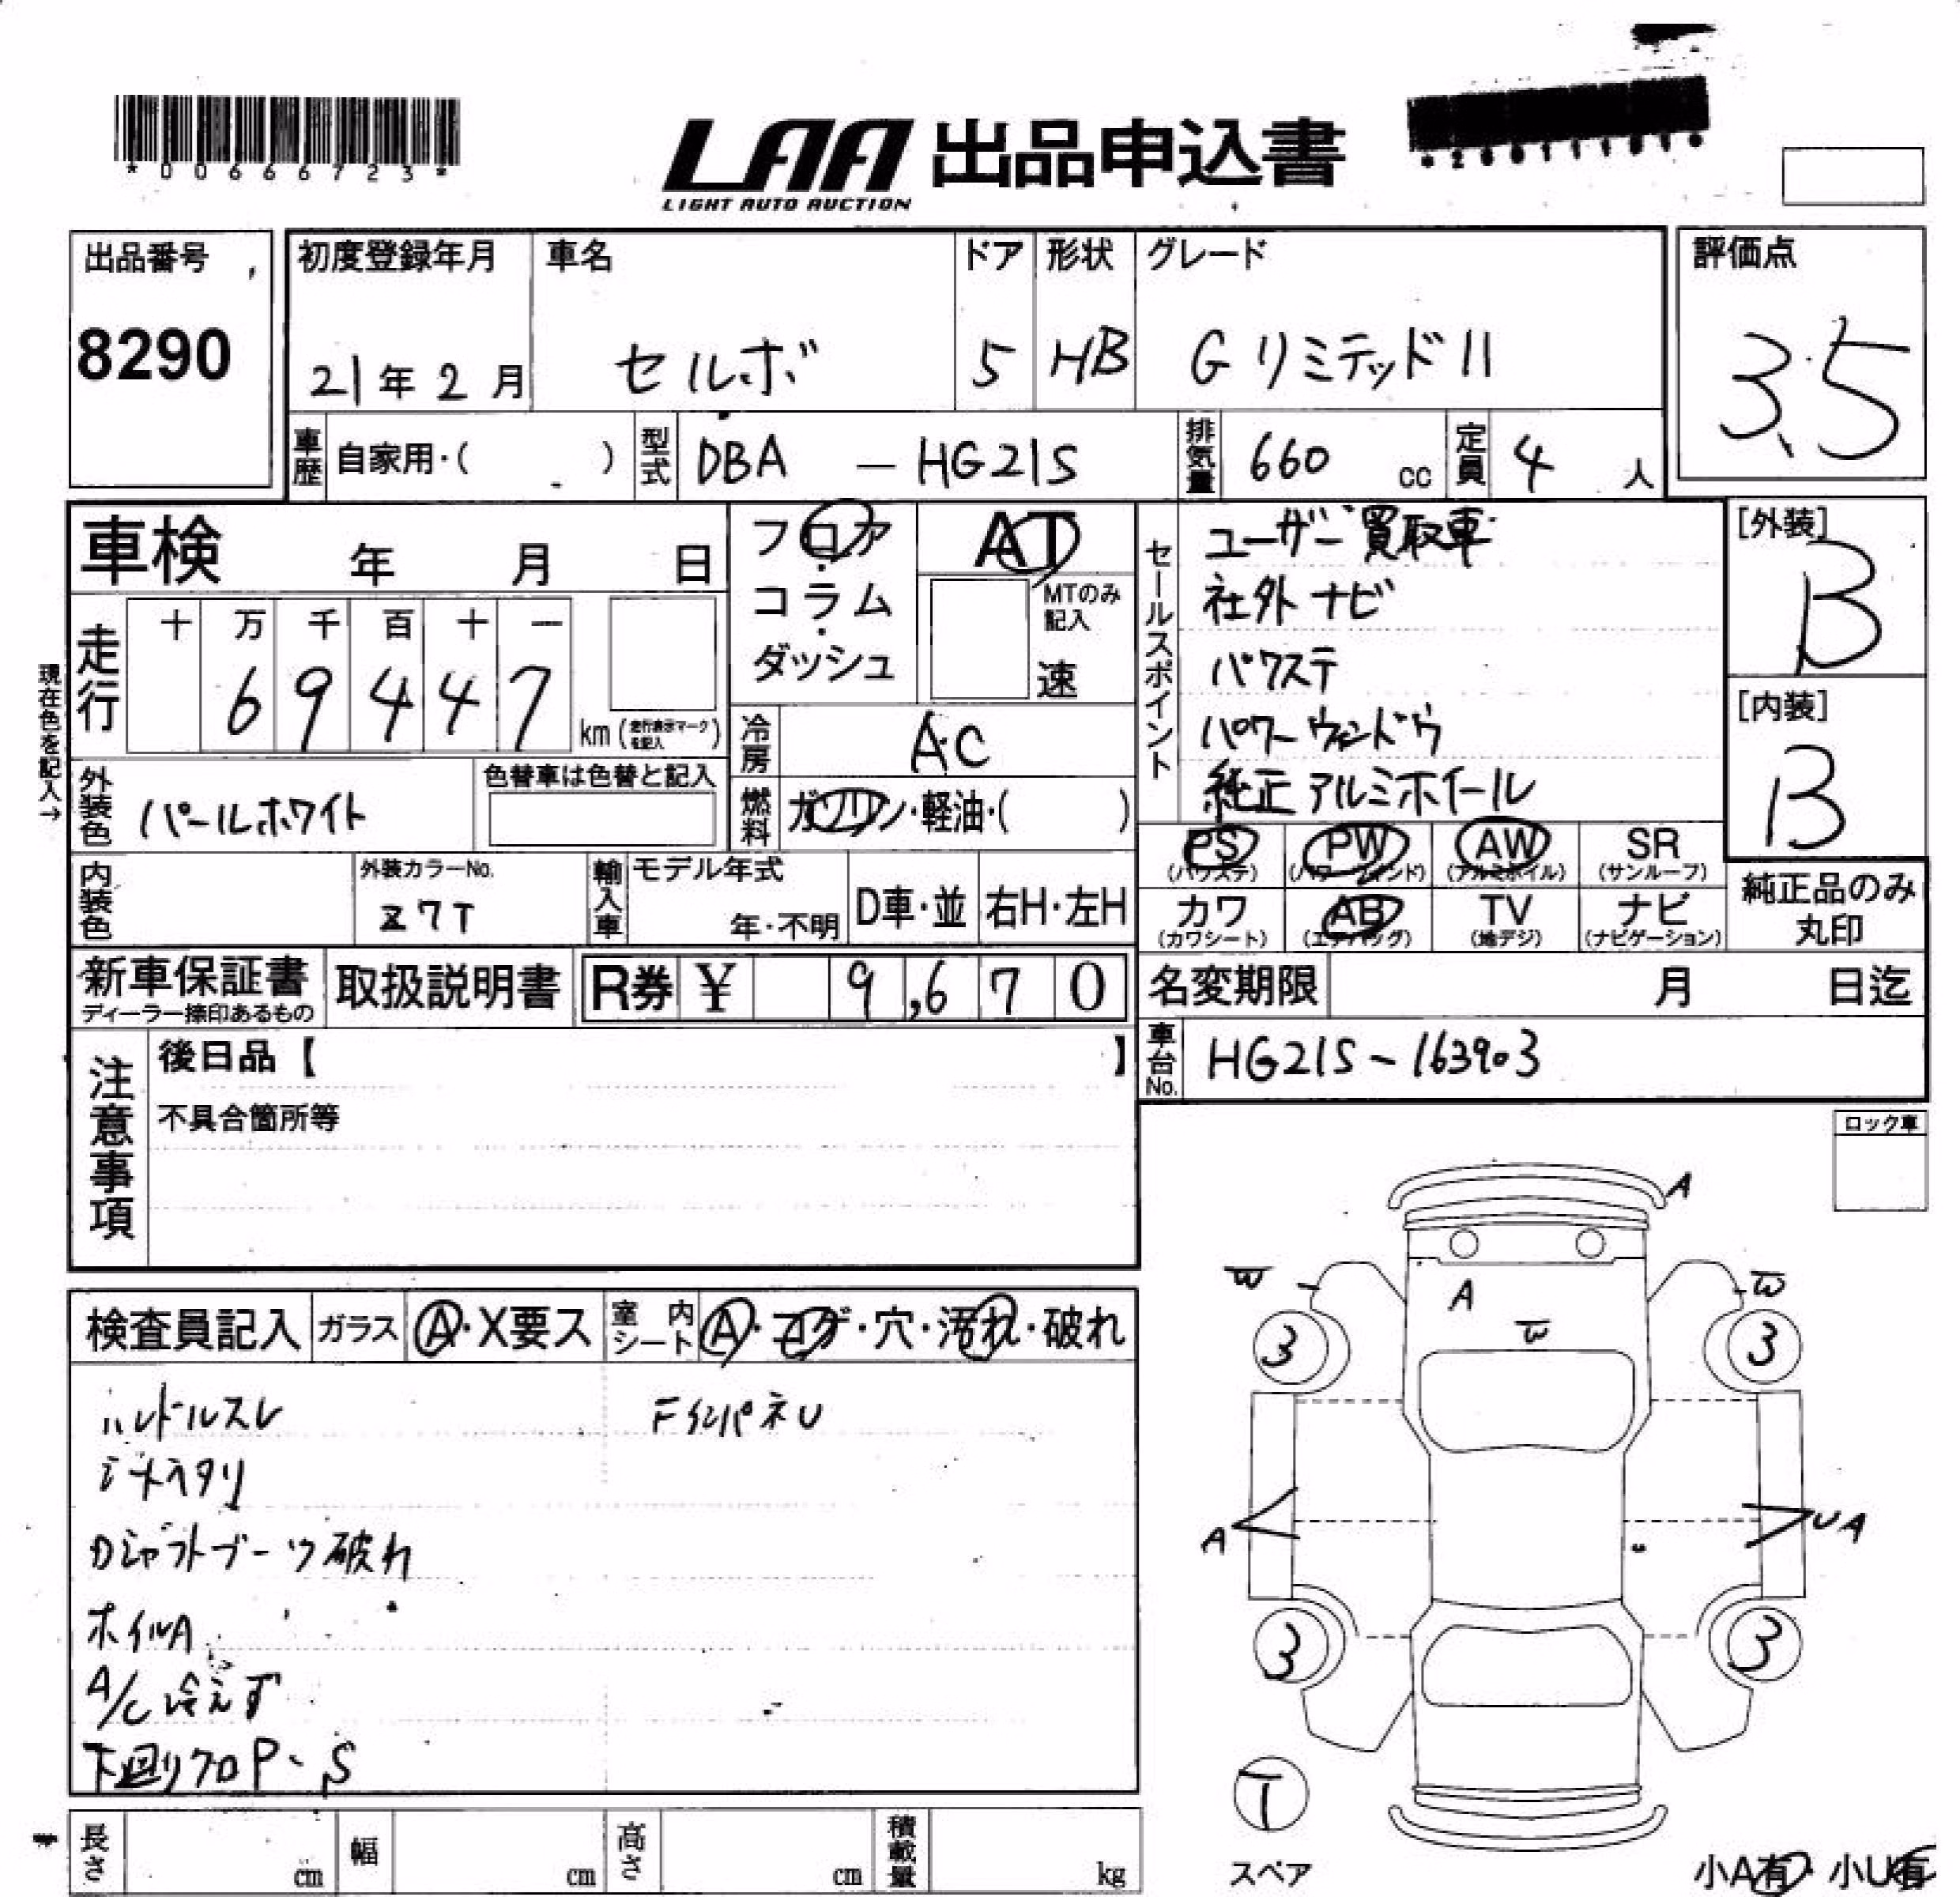 *00666723*
LAA 出品申込書
LIGHT AUTO AUCTION
出品番号
8290
初度登録年月
21年2月
車名
セルボ
ドア
5
形状
HB
グレード
G リミテッドII
評価点
3.5
車歴 自家用・( )
型式 DBA — HG21S
排気量 660 cc
定員 4 人
車検 年 月 日
フロア・コラム・ダッシュ
AT
MTのみ記入
速
セールスポイント
ユーザー買取車
社外ナビ
パワステ
パワーウィンドウ
純正アルミホイール
[外装]
B
[内装]
B
現在色を記入→
走行
十 万 千 百 十 一
6 9 4 4 7
km (走行表示マークを記入)
冷房 AC
外装色 パールホワイト
色替車は色替と記入
燃料 ガソリン・軽油・( )
PS (パワステ)
PW (パワーウインド)
AW (アルミホイル)
SR (サンルーフ)
カワ (カワシート)
AB (エアバッグ)
TV (地デジ)
ナビ (ナビゲーション)
純正品のみ丸印
内装色
外装カラーNo.
Z7T
輸入車
モデル年式
年・不明
D車・並
右H・左H
新車保証書
ディーラー捺印あるもの
取扱説明書
R券 ¥ 9,670
名変期限 月 日迄
車台No. HG21S-163903
注意事項
後日品【 】
不具合箇所等
ロック車
検査員記入
ガラス A・X要ス
室内シート A・コゲ・穴・汚れ・破れ
ハンドルスレ
FインパネU
シートヘタリ
Dシャフトブーツ破れ
ホイルA
A/C冷えず
下廻りクロP、S
A
W
W
A
W
3
3
A
UA
3
3
T
スペア
小A有・小U有
長さ cm
幅 cm
高さ cm
積載量 kg